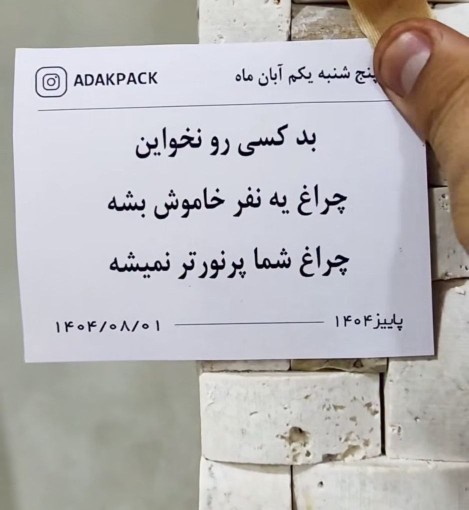 ADAKPACK پنج شنبه یکم آبان ماه
بد کسی رو نخواین
چراغ یه نفر خاموش بشه
چراغ شما پرنورتر نمیشه
پاییز۱۴۰۴ ۱۴۰۴/۰۸/۰۱